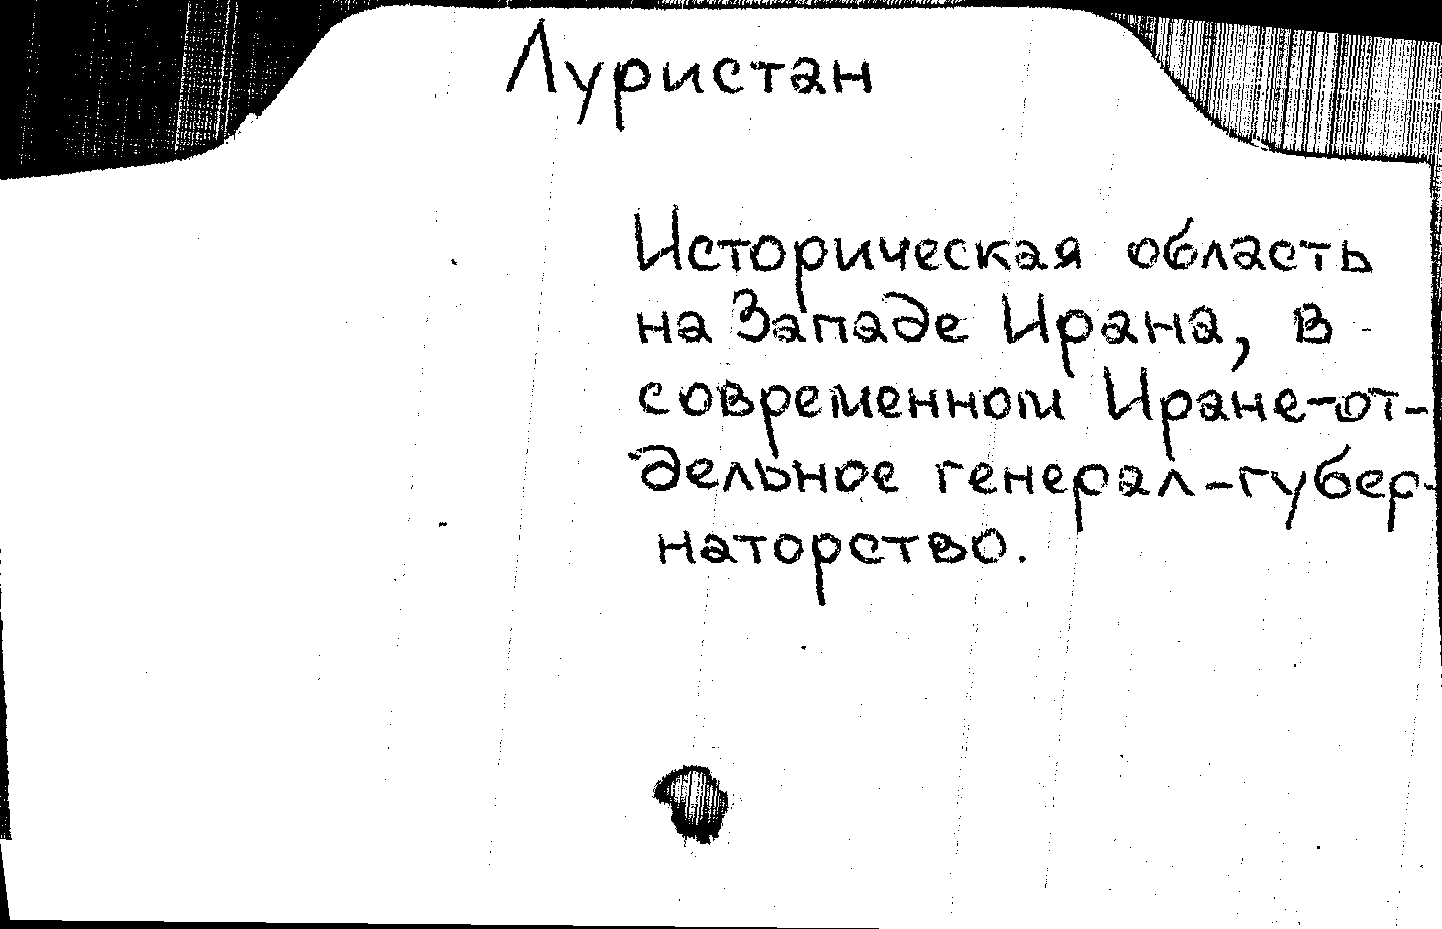 Луристан
Историческая область
на Западе Ирана, в
современном Иране-от-
дельное генерал-губер-
наторство.